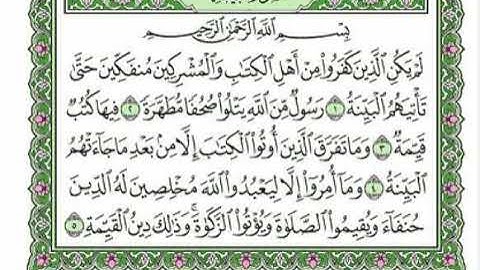 بِسْمِ اللَّهِ الرَّحْمَٰنِ الرَّحِيمِ
لَمْ يَكُنِ الَّذِينَ كَفَرُوا مِنْ أَهْلِ الْكِتَابِ وَالْمُشْرِكِينَ مُنفَكِّينَ حَتَّىٰ
تَأْتِيَهُمُ الْبَيِّنَةُ ١ رَسُولٌ مِّنَ اللَّهِ يَتْلُو صُحُفًا مُّطَهَّرَةً ٢ فِيهَا كُتُبٌ
قَيِّمَةٌ ٣ وَمَا تَفَرَّقَ الَّذِينَ أُوتُوا الْكِتَابَ إِلَّا مِن بَعْدِ مَا جَاءَتْهُمُ
الْبَيِّنَةُ ٤ وَمَا أُمِرُوا إِلَّا لِيَعْبُدُوا اللَّهَ مُخْلِصِينَ لَهُ الدِّينَ
حُنَفَاءَ وَيُقِيمُوا الصَّلَاةَ وَيُؤْتُوا الزَّكَاةَ ۚ وَذَٰلِكَ دِينُ الْقَيِّمَةِ ٥